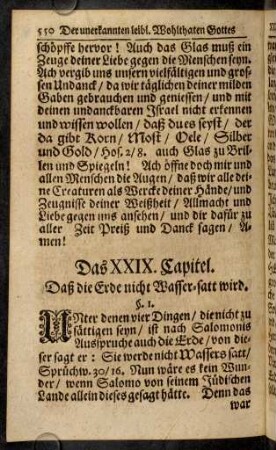 550 Der unerkannten leibl. Wohlthaten Gottes
schöpffe hervor! Auch das Glas muß ein
Zeuge deiner Liebe gegen die Menschen seyn.
Ach vergib uns unsern vielfältigen und gros-
sen Undanck/ da wir täglichen deiner milden
Gaben gebrauchen und geniessen/ und mit
deinen undanckbaren Israel nicht erkennen
und wissen wollen/ daß dues seyst/ der
da gibt Korn/ Most/ Oele/ Silber
und Gold/ Hos. 2/8. auch Glas zu Bril-
len und Spiegeln! Ach öffne doch mir und
allen Menschen die Augen/ daß wir alle dei-
ne Creaturen als Wercke deiner Hände/ und
Zeugnisse deiner Weißheit/ Allmacht und
Liebe gegen uns ansehen/ und dir dafür zu
aller Zeit Preiß und Danck sagen/ A-
men!
Das XXIX. Capitel.
Daß die Erde nicht Wasser-satt wird.
§. 1.
UNter denen vier Dingen/ die nicht zu
sättigen seyn/ ist nach Salomonis
Ausspruche auch die Erde/ von die-
ser sagt er: Sie werde nicht Wassers satt/
Sprüchw. 30/16. Nun wäre es kein Wun-
der/ wenn Salomo von seinem Jüdischen
Lande allein dieses gesagt hätte. Denn das
war